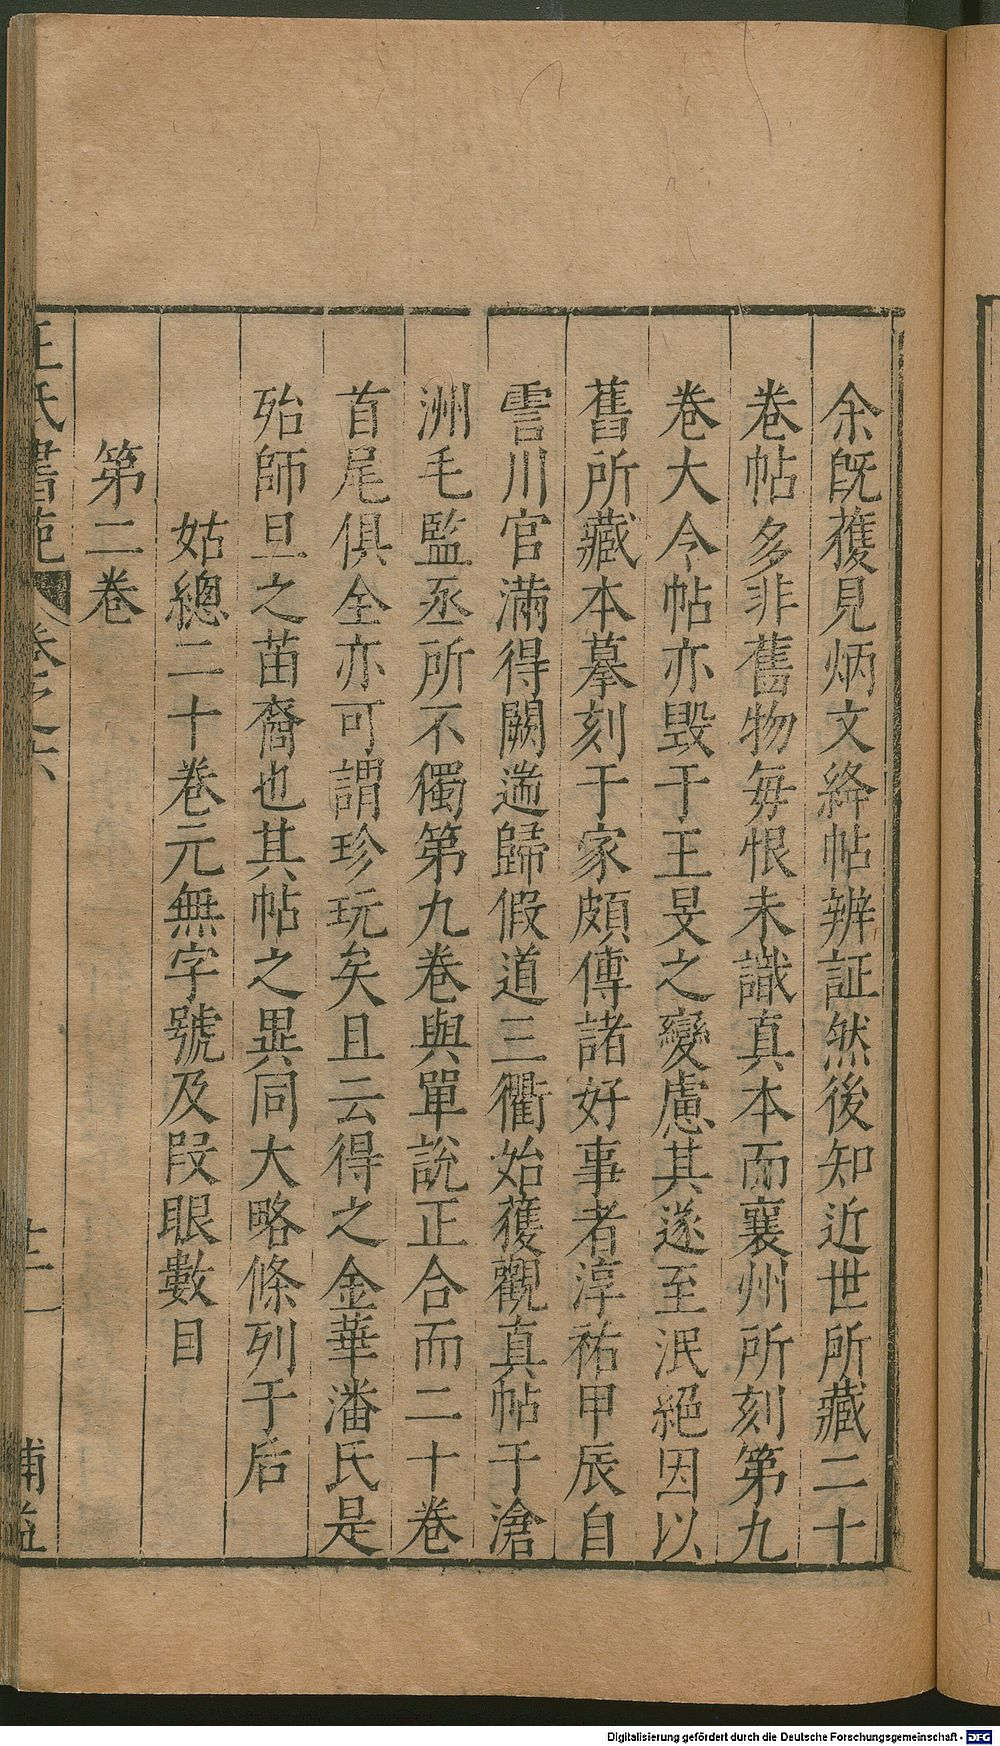 余旣獲見炳文絳帖辨証然後知近世所藏二十
卷帖多非舊物毎恨未識真本而襄州所刻第九
卷大令帖亦毀于王旻之變慮其遂至泯絕因以
舊所藏本摹刻于家頗傳諸好事者淳祐甲辰自
霅川官滿得闕遄歸假道三衢始獲觀真帖于滄
洲毛監丞所不獨第九卷與單說正合而二十卷
首尾俱全亦可謂珍玩矣且云得之金華潘氏是
殆師旦之苗裔也其帖之異同大略條列于后
姑總二十卷元無字號及段眼數目
第二卷
王氏書苑
卷之六
補益
Digitalisierung gefördert durch die Deutsche Forschungsgemeinschaft - DFG